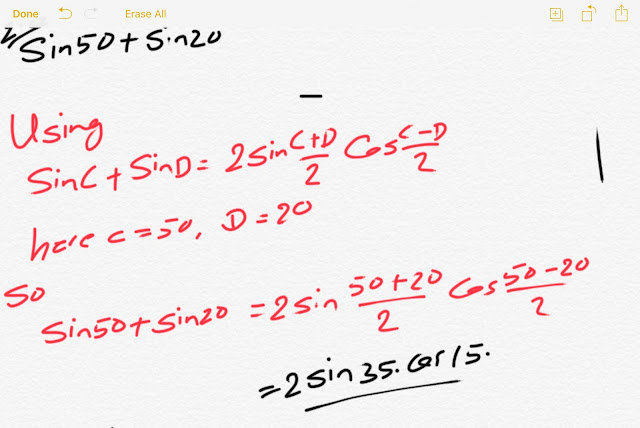 Done Erase All
Sin50 + Sin20
Using
SinC + SinD = 2 sin C+D/2 Cos C-D/2
here c = 50, D = 20
So
Sin50 + Sin20 = 2 sin 50+20/2 Cos 50-20/2
= 2 sin 35. cos 15.